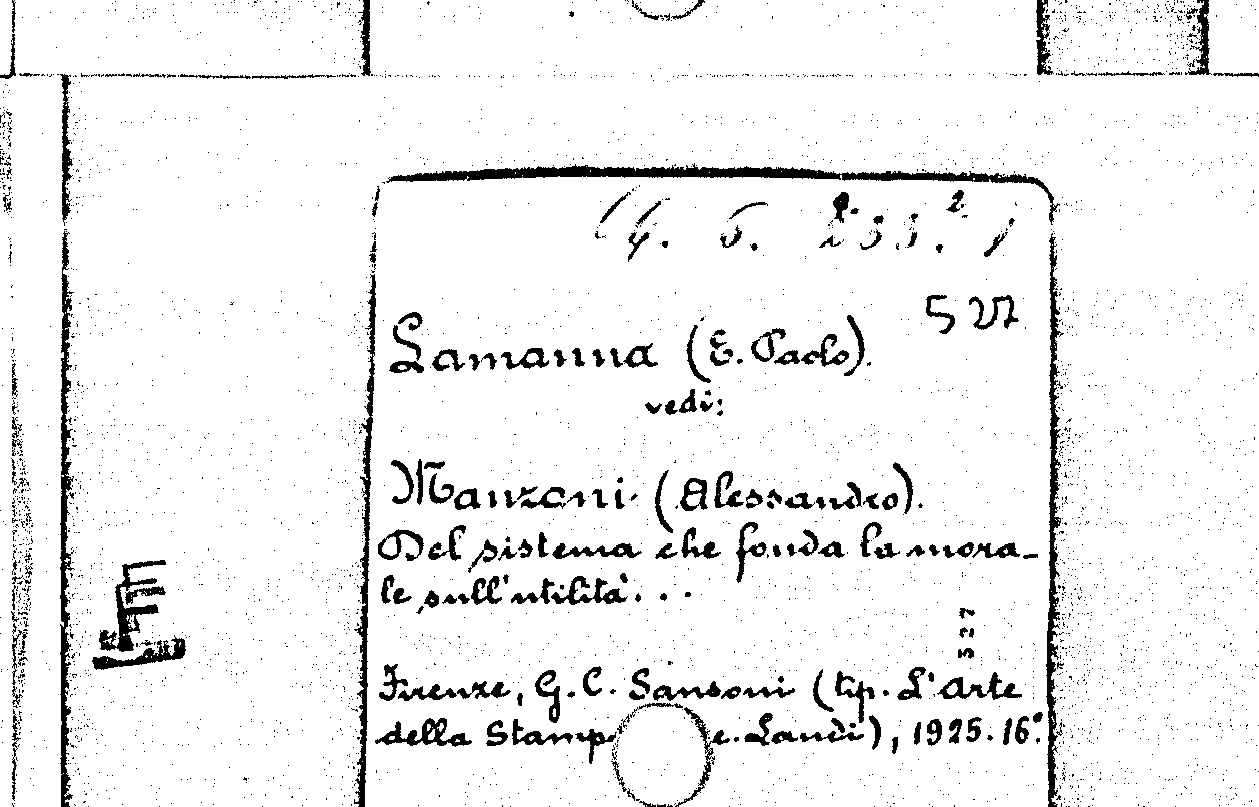 527
Lamanna (E. Paolo).
vedi:
Manzoni (Alessandro).
Del sistema che fonda la mora-
le sull'utilità...
527
Firenze, G. C. Sansoni (tip. L'Arte
della Stamp e. Landi), 1925. 16º.